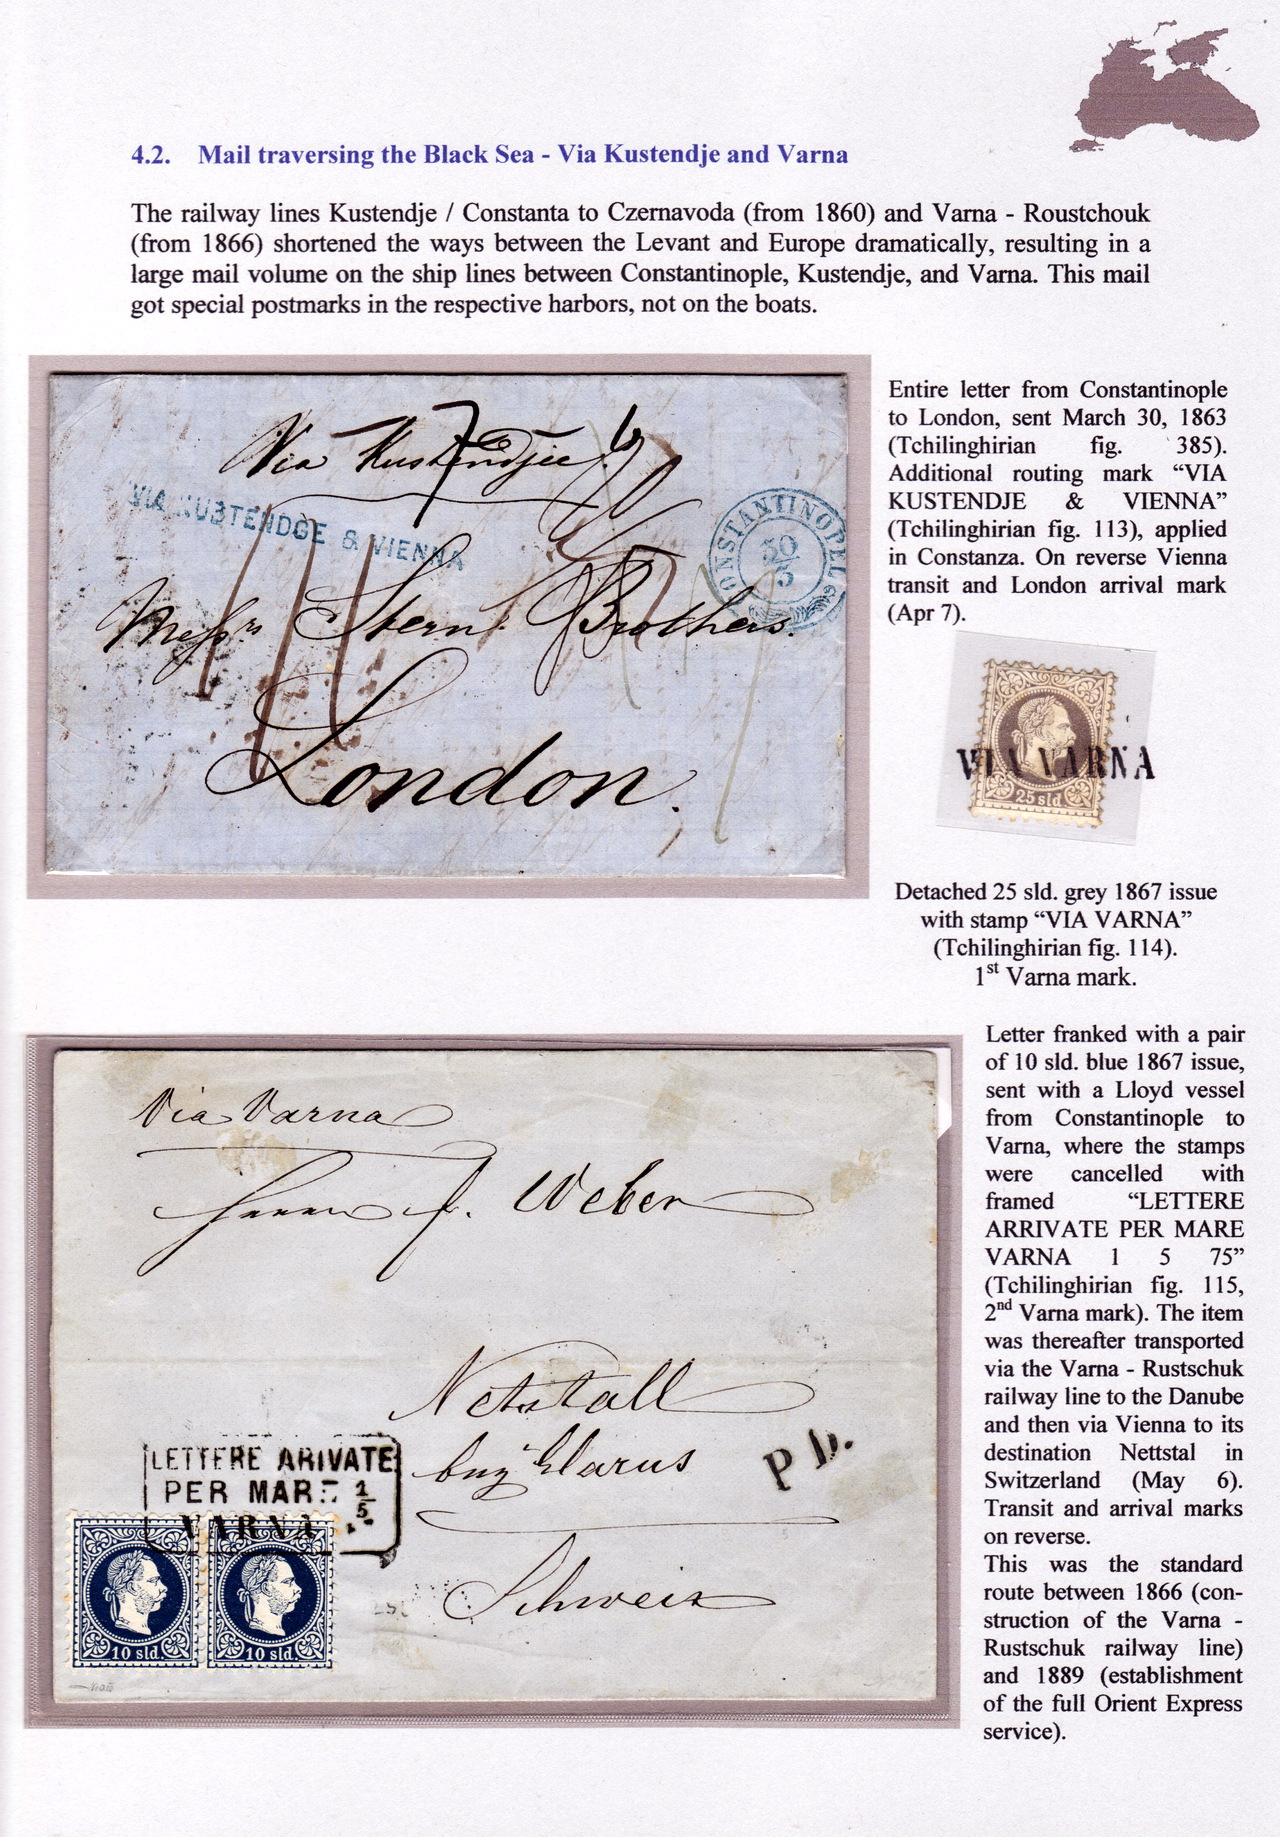 4.2. Mail traversing the Black Sea - Via Kustendje and Varna
The railway lines Kustendje / Constanta to Czernavoda (from 1860) and Varna - Roustchouk
(from 1866) shortened the ways between the Levant and Europe dramatically, resulting in a
large mail volume on the ship lines between Constantinople, Kustendje, and Varna. This mail
got special postmarks in the respective harbors, not on the boats.
Via Kustendjee
VIA KUSTENDGE & VIENNA
CONSTANTINOPEL
30
3
Messrs Stern Brothers.
London.
Entire letter from Constantinople
to London, sent March 30, 1863
(Tchilinghirian fig. 385).
Additional routing mark “VIA
KUSTENDJE & VIENNA”
(Tchilinghirian fig. 113), applied
in Constanza. On reverse Vienna
transit and London arrival mark
(Apr 7).
VIA VARNA
25 sld.
Detached 25 sld. grey 1867 issue
with stamp “VIA VARNA”
(Tchilinghirian fig. 114).
1st Varna mark.
Via Varna
Herrn J. Weber
Netstall
bey Glarus
Schweiz
P.D.
LETTERE ARIVATE
PER MARE 1/5
VARNA
10 sld. 10 sld.
Letter franked with a pair
of 10 sld. blue 1867 issue,
sent with a Lloyd vessel
from Constantinople to
Varna, where the stamps
were cancelled with
framed “LETTERE
ARRIVATE PER MARE
VARNA 1 5 75”
(Tchilinghirian fig. 115,
2nd Varna mark). The item
was thereafter transported
via the Varna - Rustschuk
railway line to the Danube
and then via Vienna to its
destination Nettstal in
Switzerland (May 6).
Transit and arrival marks
on reverse.
This was the standard
route between 1866 (con-
struction of the Varna -
Rustschuk railway line)
and 1889 (establishment
of the full Orient Express
service).